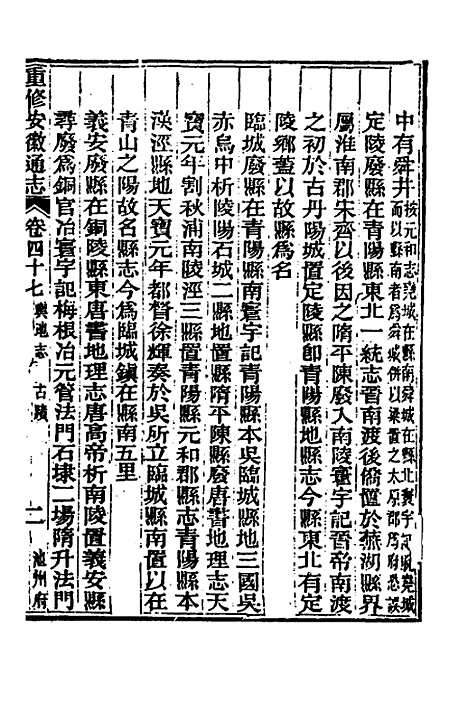 中有舜井按元和志堯城在縣南舜城在縣北寰宇記堯城
而以縣南者為舜城併以梁置之太原郡為府悉誤
定陵廢縣在青陽縣東北一統志晉南渡後僑置於蕪湖縣界
屬淮南郡宋齊以後因之隋平陳廢入南陵寰宇記晉帝南渡
之初於古丹陽城置定陵縣卽青陽縣地縣志今縣東北有定
陵鄉蓋以故縣爲名
臨城廢縣在青陽縣南寰宇記青陽縣本吳臨城縣地三國吳
赤烏中析陵陽石城二縣地置縣隋平陳縣廢唐書地理志天
寶元年割秋浦南陵涇三縣置青陽縣元和郡縣志青陽縣本
漢涇縣地天寶元年都督徐輝奏於吳所立臨城縣南置以在
青山之陽故名縣志今爲臨城鎮在縣南五里
義安廢縣在銅陵縣東唐書地理志唐高帝析南陵置義安縣
尋廢爲銅官冶寰宇記梅根冶元管法門石埭二場隋升法門
重修安徽通志
卷四十七
輿地志
古蹟
二
池州府